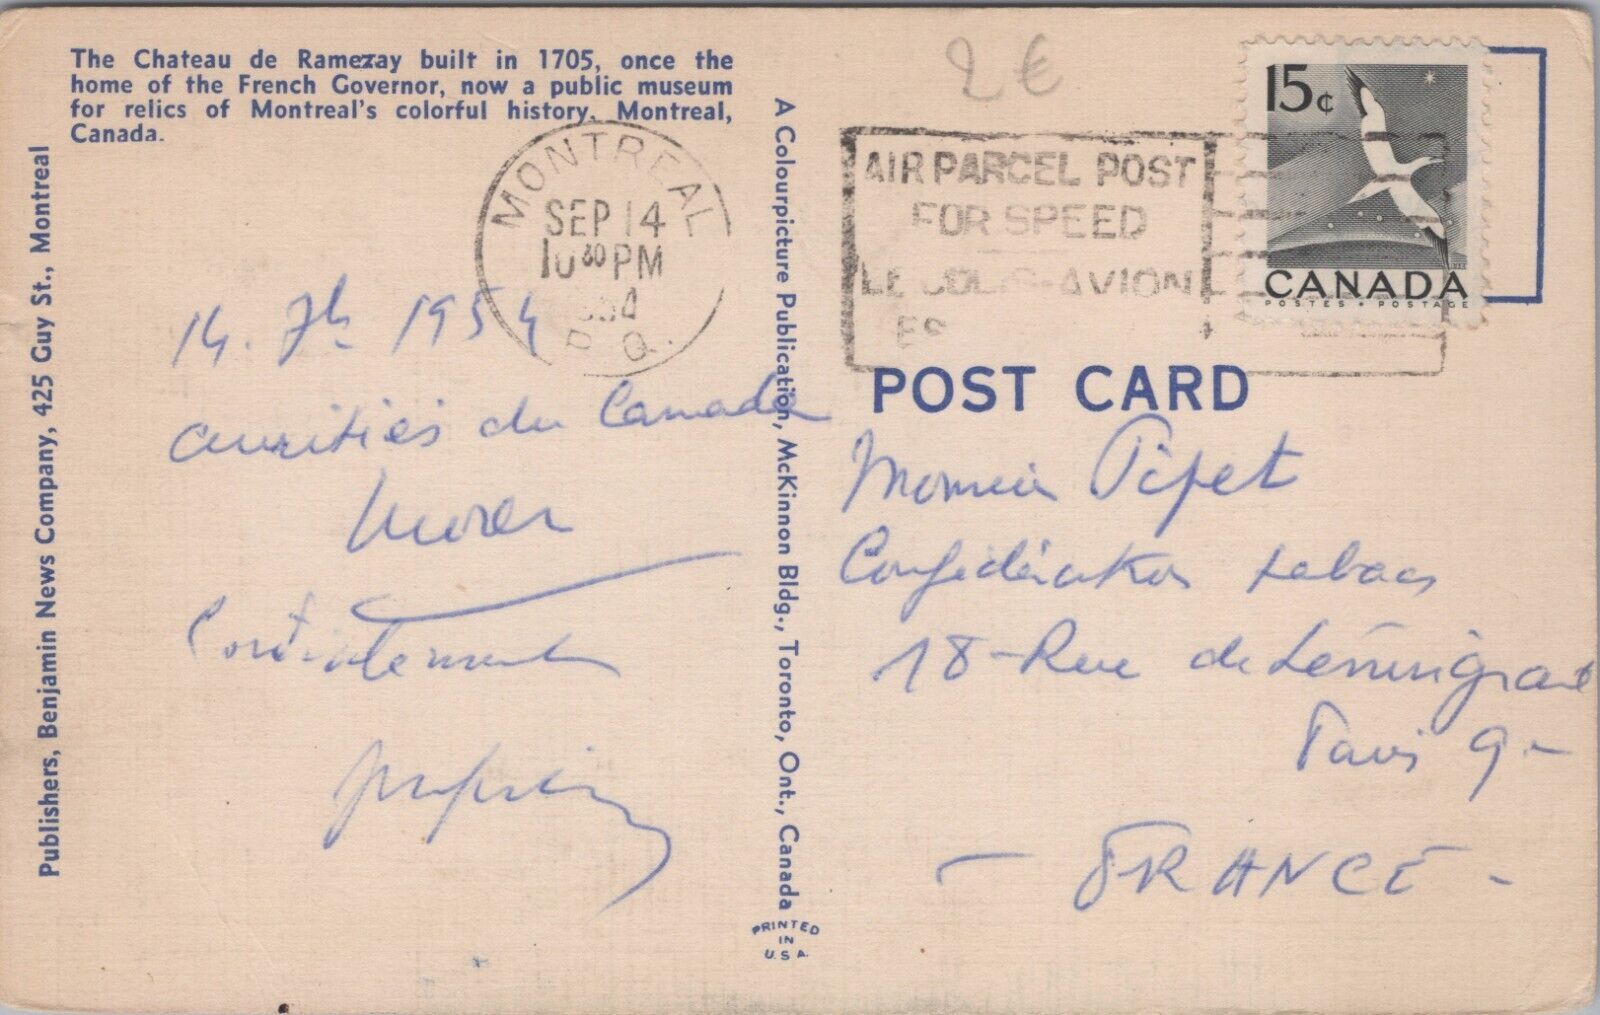 The Chateau de Ramezay built in 1705, once the
home of the French Governor, now a public museum
for relics of Montreal's colorful history. Montreal,
Canada.
Publishers, Benjamin News Company, 425 Guy St., Montreal
MONTREAL
SEP 14
10 30 PM
P. Q.
14. 7b 1954
du Canada
A Colourpicture Publication, McKinnon Bldg., Toronto, Ont., Canada
PRINTED
IN
U.S.A.
2 €
AIR PARCEL POST
FOR SPEED
LE COLIS-AVION
ES
15¢
CANADA
POSTES • POSTAGE
POST CARD
Monsieur Pipet
Confédération tabacs
18 - Rue de
Paris 9 -
- FRANCE -